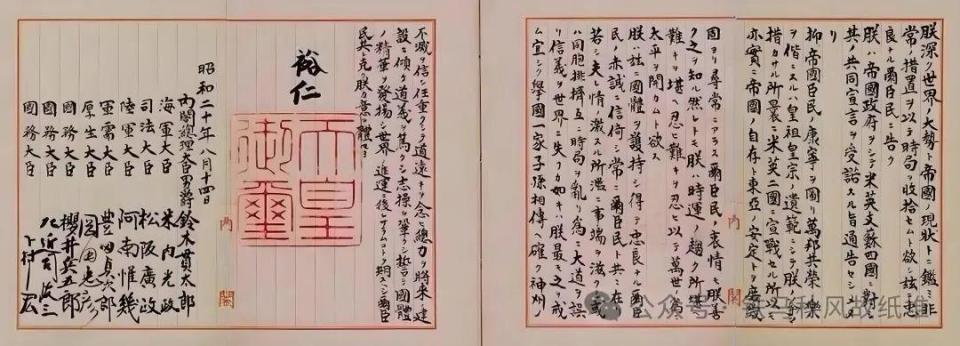 朕深ク世界ノ大勢ト帝國ノ現狀トニ鑑ミ非
常ノ措置ヲ以テ時局ヲ收拾セムト欲シ茲ニ忠
良ナル爾臣民ニ告ク
朕ハ帝國政府ヲシテ米英支蘇四國ニ對シ
其ノ共同宣言ヲ受諾スル旨通告セシメタ
リ
抑帝國臣民ノ康寧ヲ圖リ萬邦共榮ノ樂
ヲ偕ニスルハ皇祖皇宗ノ遺範ニシテ朕ノ拳々
措カサル所曩ニ米英二國ニ宣戰セル所以モ
亦實ニ帝國ノ自存ト東亞ノ安定トヲ庶幾
固ヨリ尋常ニアラス爾臣民ノ衷情モ朕善
ク之ヲ知ル然レトモ朕ハ時運ノ趨ク所堪ヘ
難キヲ堪ヘ忍ヒ難キヲ忍ヒ以テ萬世ノ爲ニ
太平ヲ開カムト欲ス
朕ハ茲ニ國體ヲ護持シ得テ忠良ナル爾臣
民ノ赤誠ニ信倚シ常ニ爾臣民ト共ニ在リ
若シ夫レ情ノ激スル所濫ニ事端ヲ滋クシ或
ハ同胞排擠互ニ時局ヲ亂リ爲ニ大道ヲ誤
リ信義ヲ世界ニ失フカ如キハ朕最モ之ヲ戒
ム宜シク擧國一家子孫相傳ヘ確ク神州ノ
内閣
不滅ヲ信シ任重クシテ道遠キヲ念ヒ總力ヲ將來ノ建
設ニ傾ケ道義ヲ篤クシ志操ヲ鞏クシ誓テ國體
ノ精華ヲ發揚シ世界ノ進運ニ後レサラムコトヲ期スヘシ爾臣
民其レ克ク朕カ意ヲ體セヨ
裕仁
天皇
御璽
内閣
昭和二十年八月十四日
内閣總理大臣男爵 鈴木貫太郎
海軍大臣 米内光政
司法大臣 松阪廣政
陸軍大臣 阿南惟幾
軍需大臣 豊田貞次郎
厚生大臣 岡田忠彦
國務大臣 櫻井兵五郎
國務大臣 左近司政三
國務大臣 下村宏
公众号